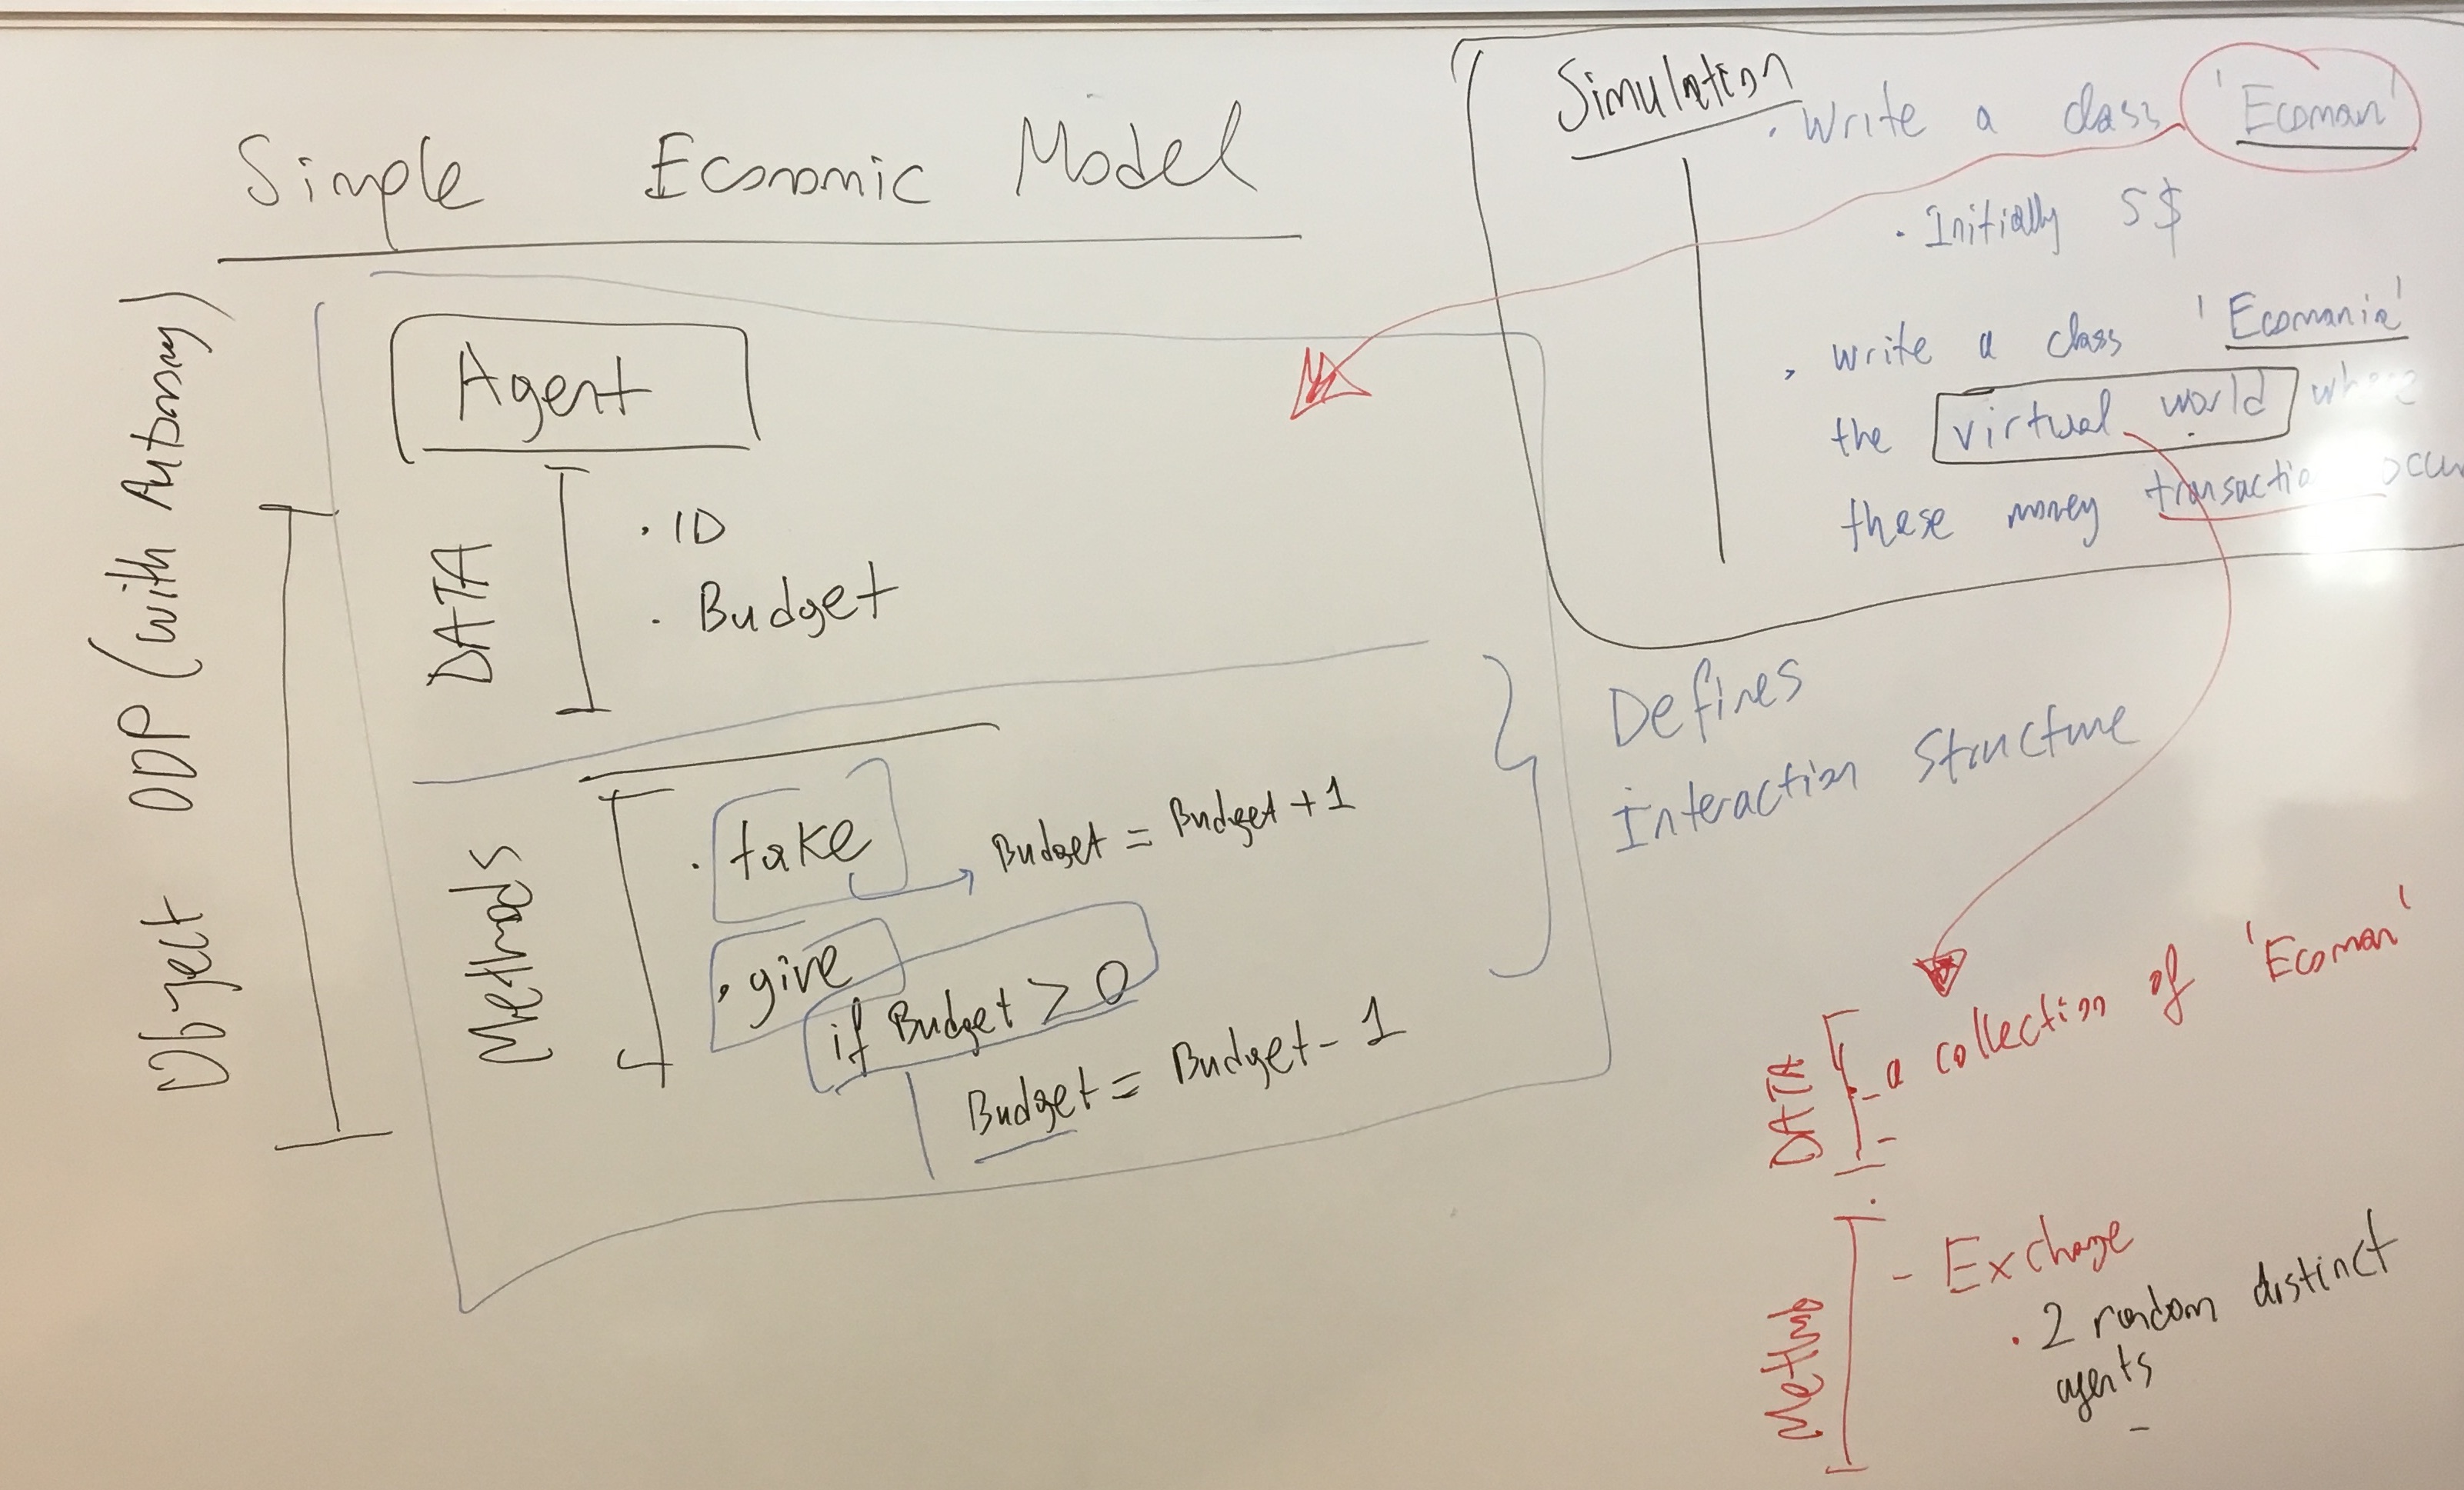 Simple Economic Model
Object OOP (with Autonomy)
Agent
DATA
. ID
. Budget
Methods
. take
Budget = Budget + 1
. give
if Budget > 0
Budget = Budget - 1
Defines
Interaction Structure
Simulation
. Write a class 'Ecoman'
. Initially 5$
. write a class 'Ecomania'
the virtual world where
these money transaction occur
DATA
- a collection of 'Ecoman'
-
Methods
- Exchange
. 2 random distinct
agents
-